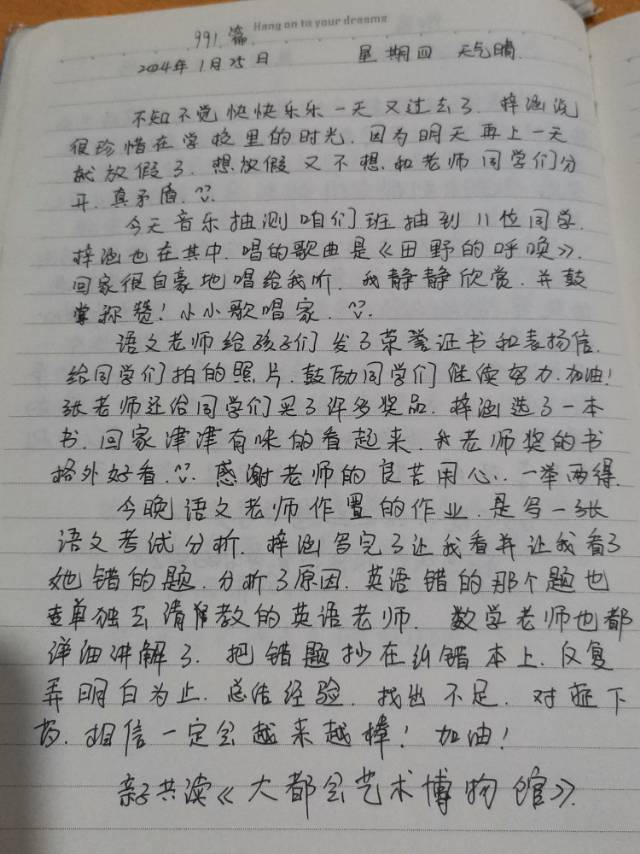 Hang on to your dreams
991.篇.
2024年1月25日 星期四 天气晴.
不知不觉快快乐乐一天又过去了.梓涵说
很珍惜在学校里的时光.因为明天再上一天
就放假了.想放假又不想和老师同学们分
开.真矛盾.
今天音乐抽测咱们班抽到11位同学.
梓涵也在其中.唱的歌曲是《田野的呼唤》.
回家很自豪地唱给我听.我静静欣赏.并鼓
掌称赞!小小歌唱家.
语文老师给孩子们发了荣誉证书和表扬信.
给同学们拍的照片.鼓励同学们继续努力.加油!
张老师还给同学们买了许多奖品.梓涵选了一本
书.回家津津有味的看起来.我老师奖的书
格外好看.感谢老师的良苦用心..一举两得.
今晚语文老师作置的作业.是写一张
语文考试分析.梓涵写完了让我看并让我看了
她错的题.分析了原因.英语错的那个题也
单独去请教的英语老师.数学老师也都
详细讲解了.把错题抄在纠错本上.反复
弄明白为止.总结经验.找出不足.对症下
药.相信一定会越来越棒!加油!
亲子共读《大都会艺术博物馆》.